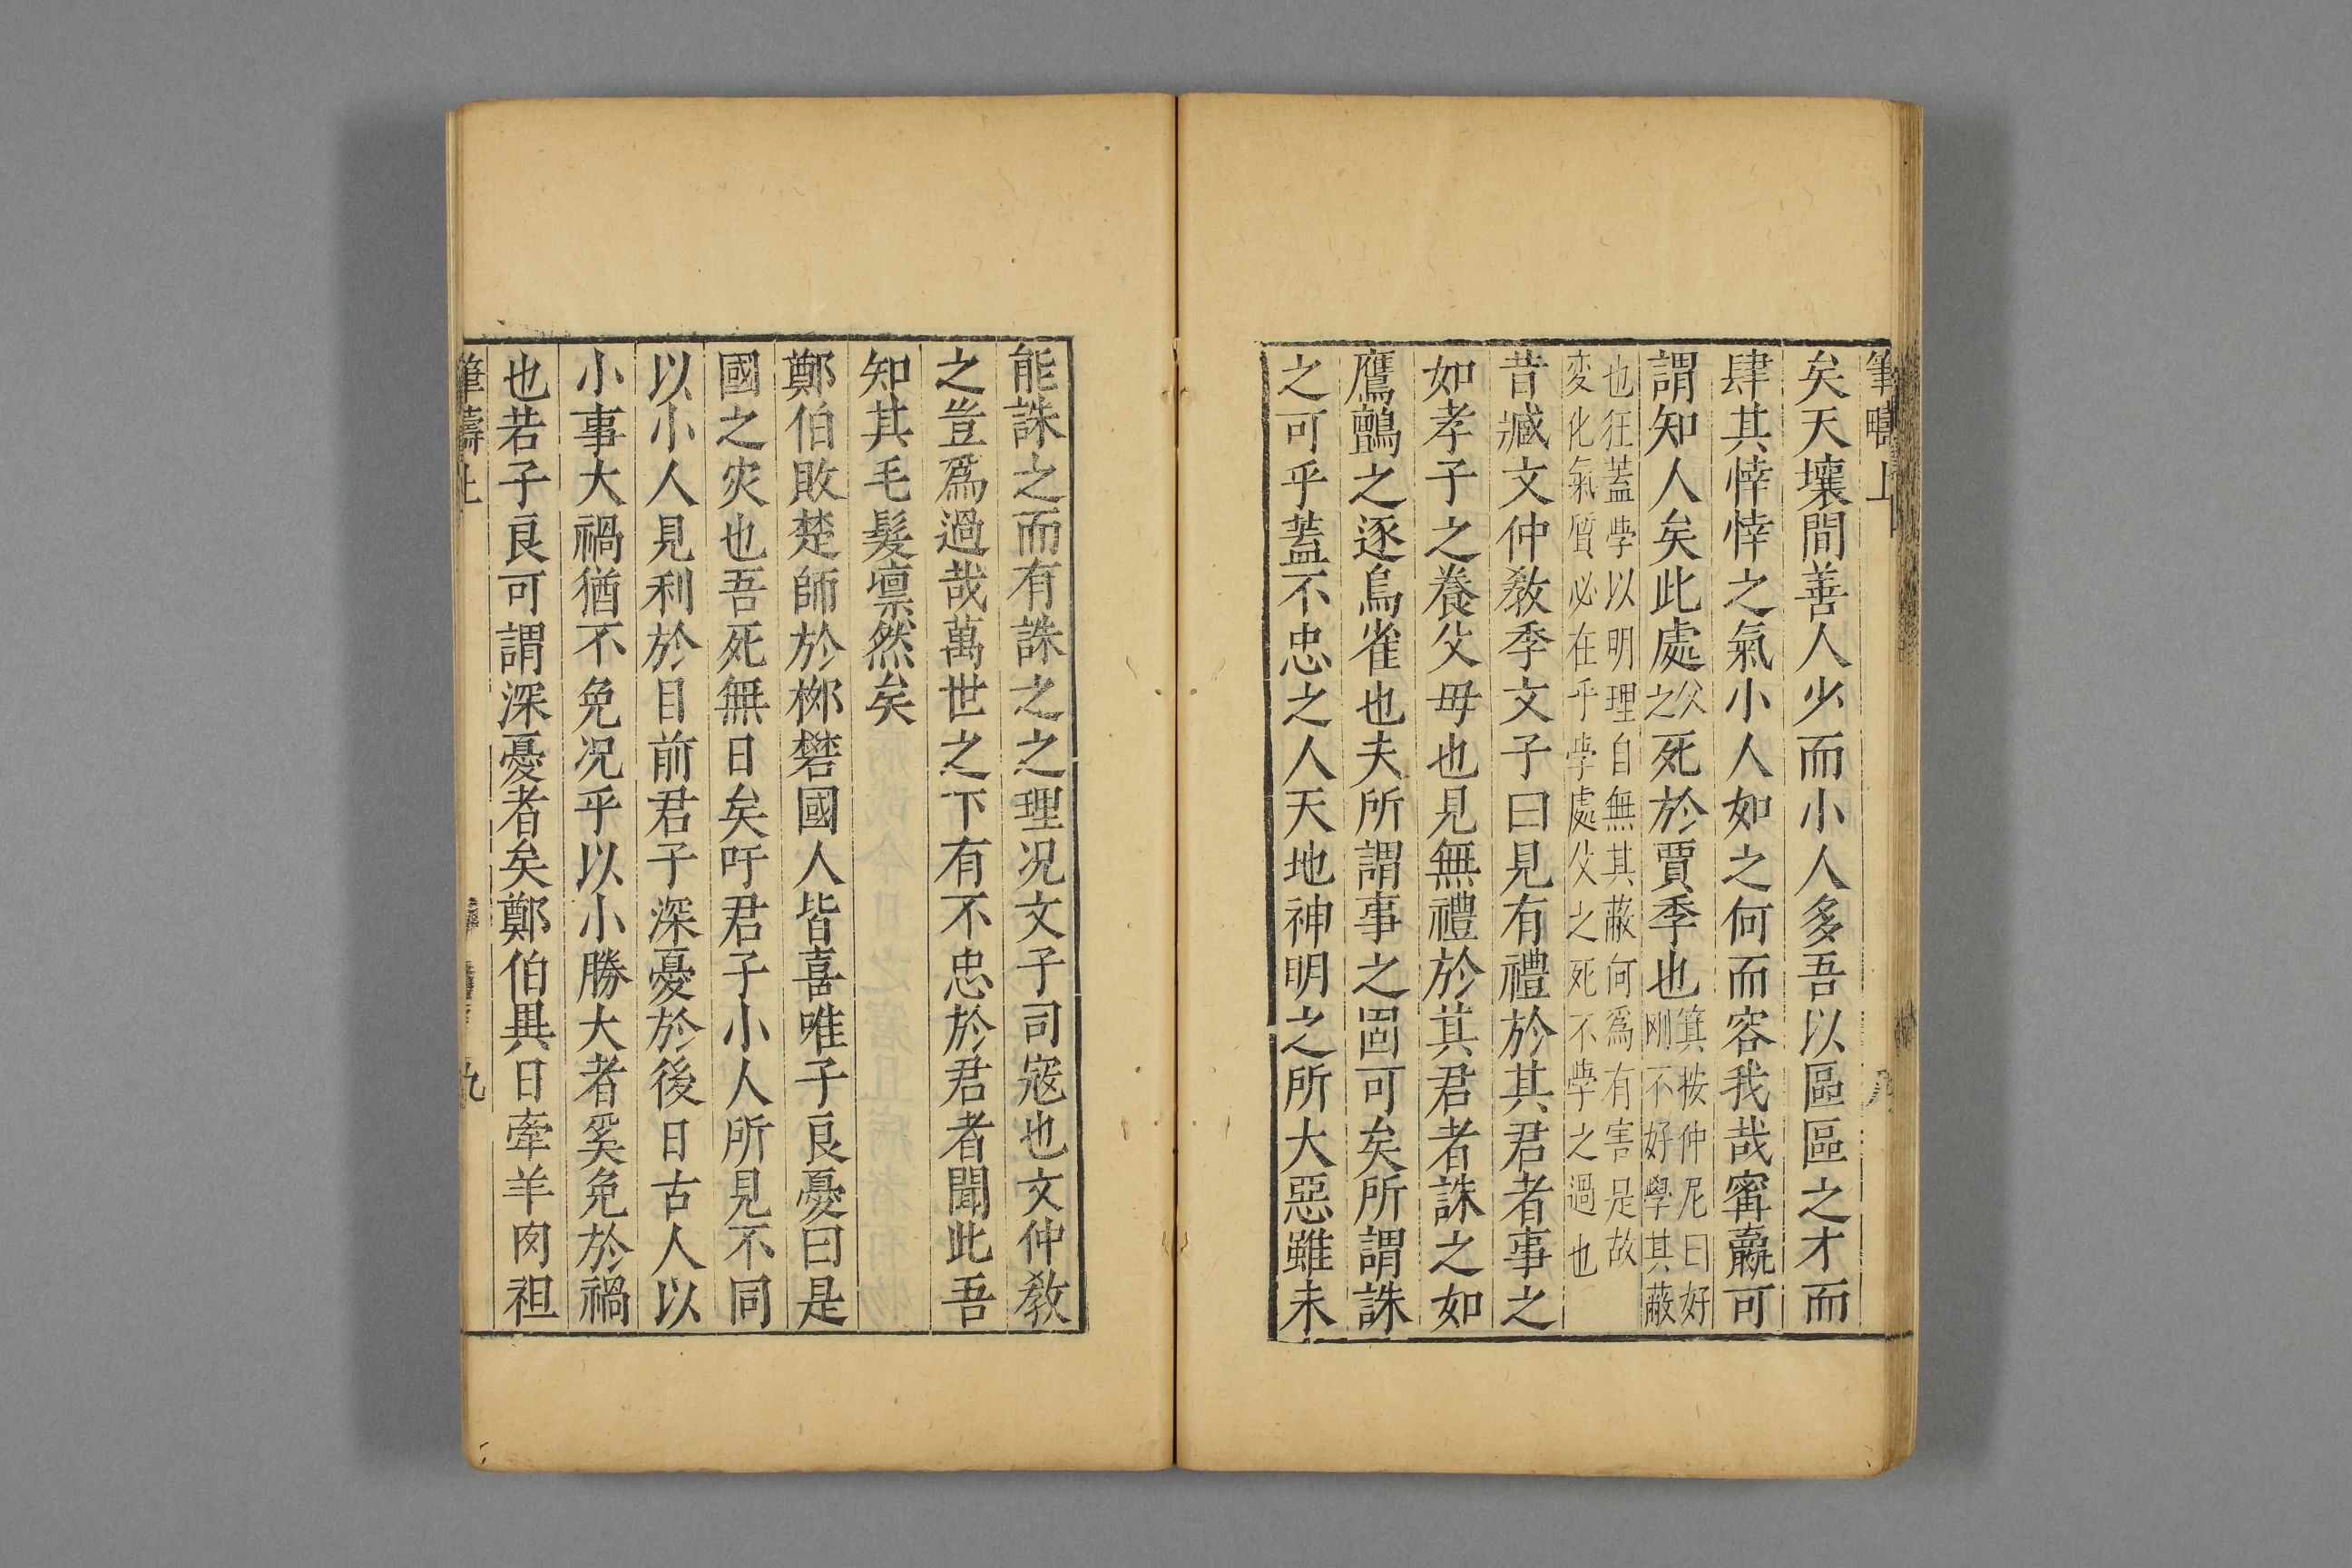 筆疇上
矣天壤間善人少而小人多吾以區區之才而
肆其悻悻之氣小人如之何而容我哉甯嬴可
謂知人矣此處父之死於賈季也箕按仲尼曰好剛不好學其蔽
也狂蓋學以明理自無其蔽何爲有害是故
変化氣質必在乎學處父之死不學之過也
昔臧文仲敎季文子曰見有禮於其君者事之
如孝子之養父母也見無禮於其君者誅之如
鷹鸇之逐鳥雀也夫所謂事之固可矣所謂誅
之可乎蓋不忠之人天地神明之所大惡雖未
能誅之而有誅之之理况文子司寇也文仲敎
之豈爲過哉萬世之下有不忠於君者聞此吾
知其毛髮凛然矣
鄭伯敗楚師於桺棼國人皆喜唯子良憂曰是
國之灾也吾死無日矣吁君子小人所見不同
以小人見利於目前君子深憂於後日古人以
小事大禍猶不免况乎以小勝大者奚免於禍
也若子良可謂深憂者矣鄭伯異日牽羊肉袒
筆疇上
九